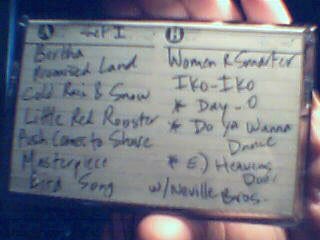 A SET I
Bertha
Promised Land
Cold Rain & Snow
Little Red Rooster
Push Comes to Shove
Masterpiece
Bird Song
B
Women R Smarter
Iko-Iko
* Day-O
* Do Ya Wanna
Dance
* E) Heavens
Door
w/Neville Bros.